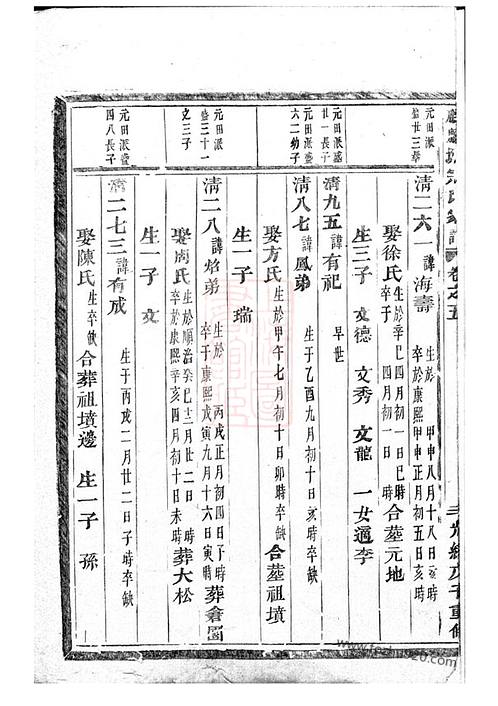 卷之五
元田派盛
世三
清二六一諱海壽 生於 甲申八月十八日亥時
卒於康熙甲申正月初五日亥時
娶徐氏 生於辛巳四月初一日巳時
卒於 四月初一日 時 合塟元地
生三子 文德 文秀 文龍 一女適李
元田派盛
廿一長子
清九五諱有祀 早世
元田派盛
六二幼子
清八七諱鳳弟 生于乙酉九月初十日亥時卒缺
娶方氏 生於甲午七月初十日卯時卒缺 合塟祖墳
生一子 瑞
元田派
盛三十一
文三子
清二八諱焰弟 丙戌正月初四日子時
卒于康熙戊寅九月十六日寅時 葬倉園
娶周氏 生於順治癸巳十二月廿二日 時
卒於康熙辛亥四月初十日未時 葬大松
生一子 文
元田派盛
四八長子
清二七三諱有成 生于丙戌二月廿二日子時卒缺
娶陳氏 生卒缺 合葬祖墳邊 生一子 孫
光緒戊子重修
www.fozhu920.com